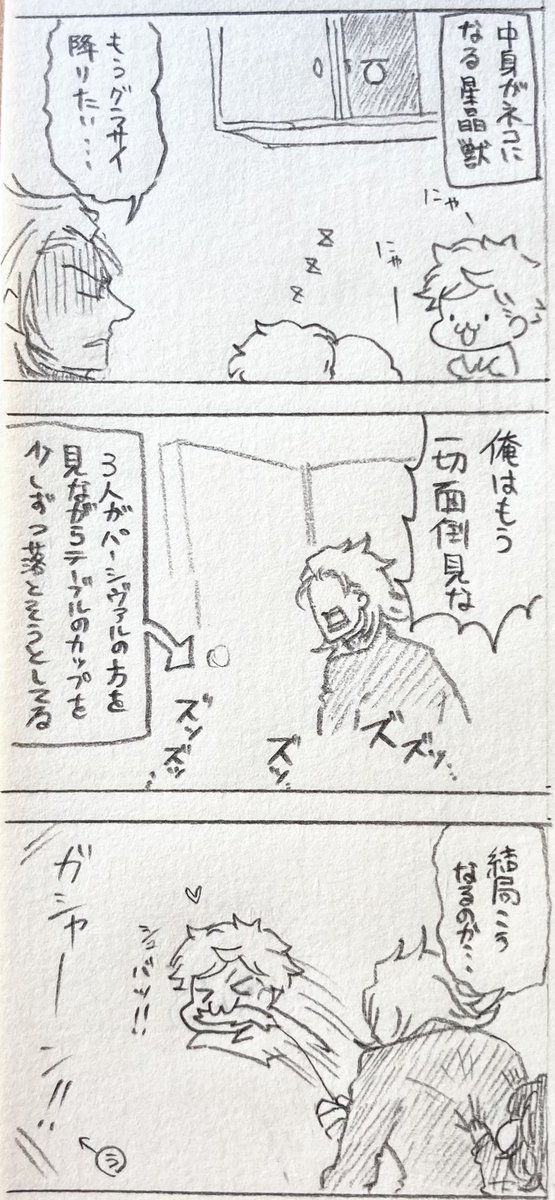 中身がネコに
なる星晶獣
にゃー
にゃー
z
z
z
もうグラサイ
降りたい…
俺はもう
一切面倒見な
3人がパーシヴァルの方を
見ながらテーブルのカップを
少しずつ落とそうとしてる
ズズッ…
ズッ…
ズッ
ズッ
結局こう
なるのか…
シュバッ!!
ガシャーン!!